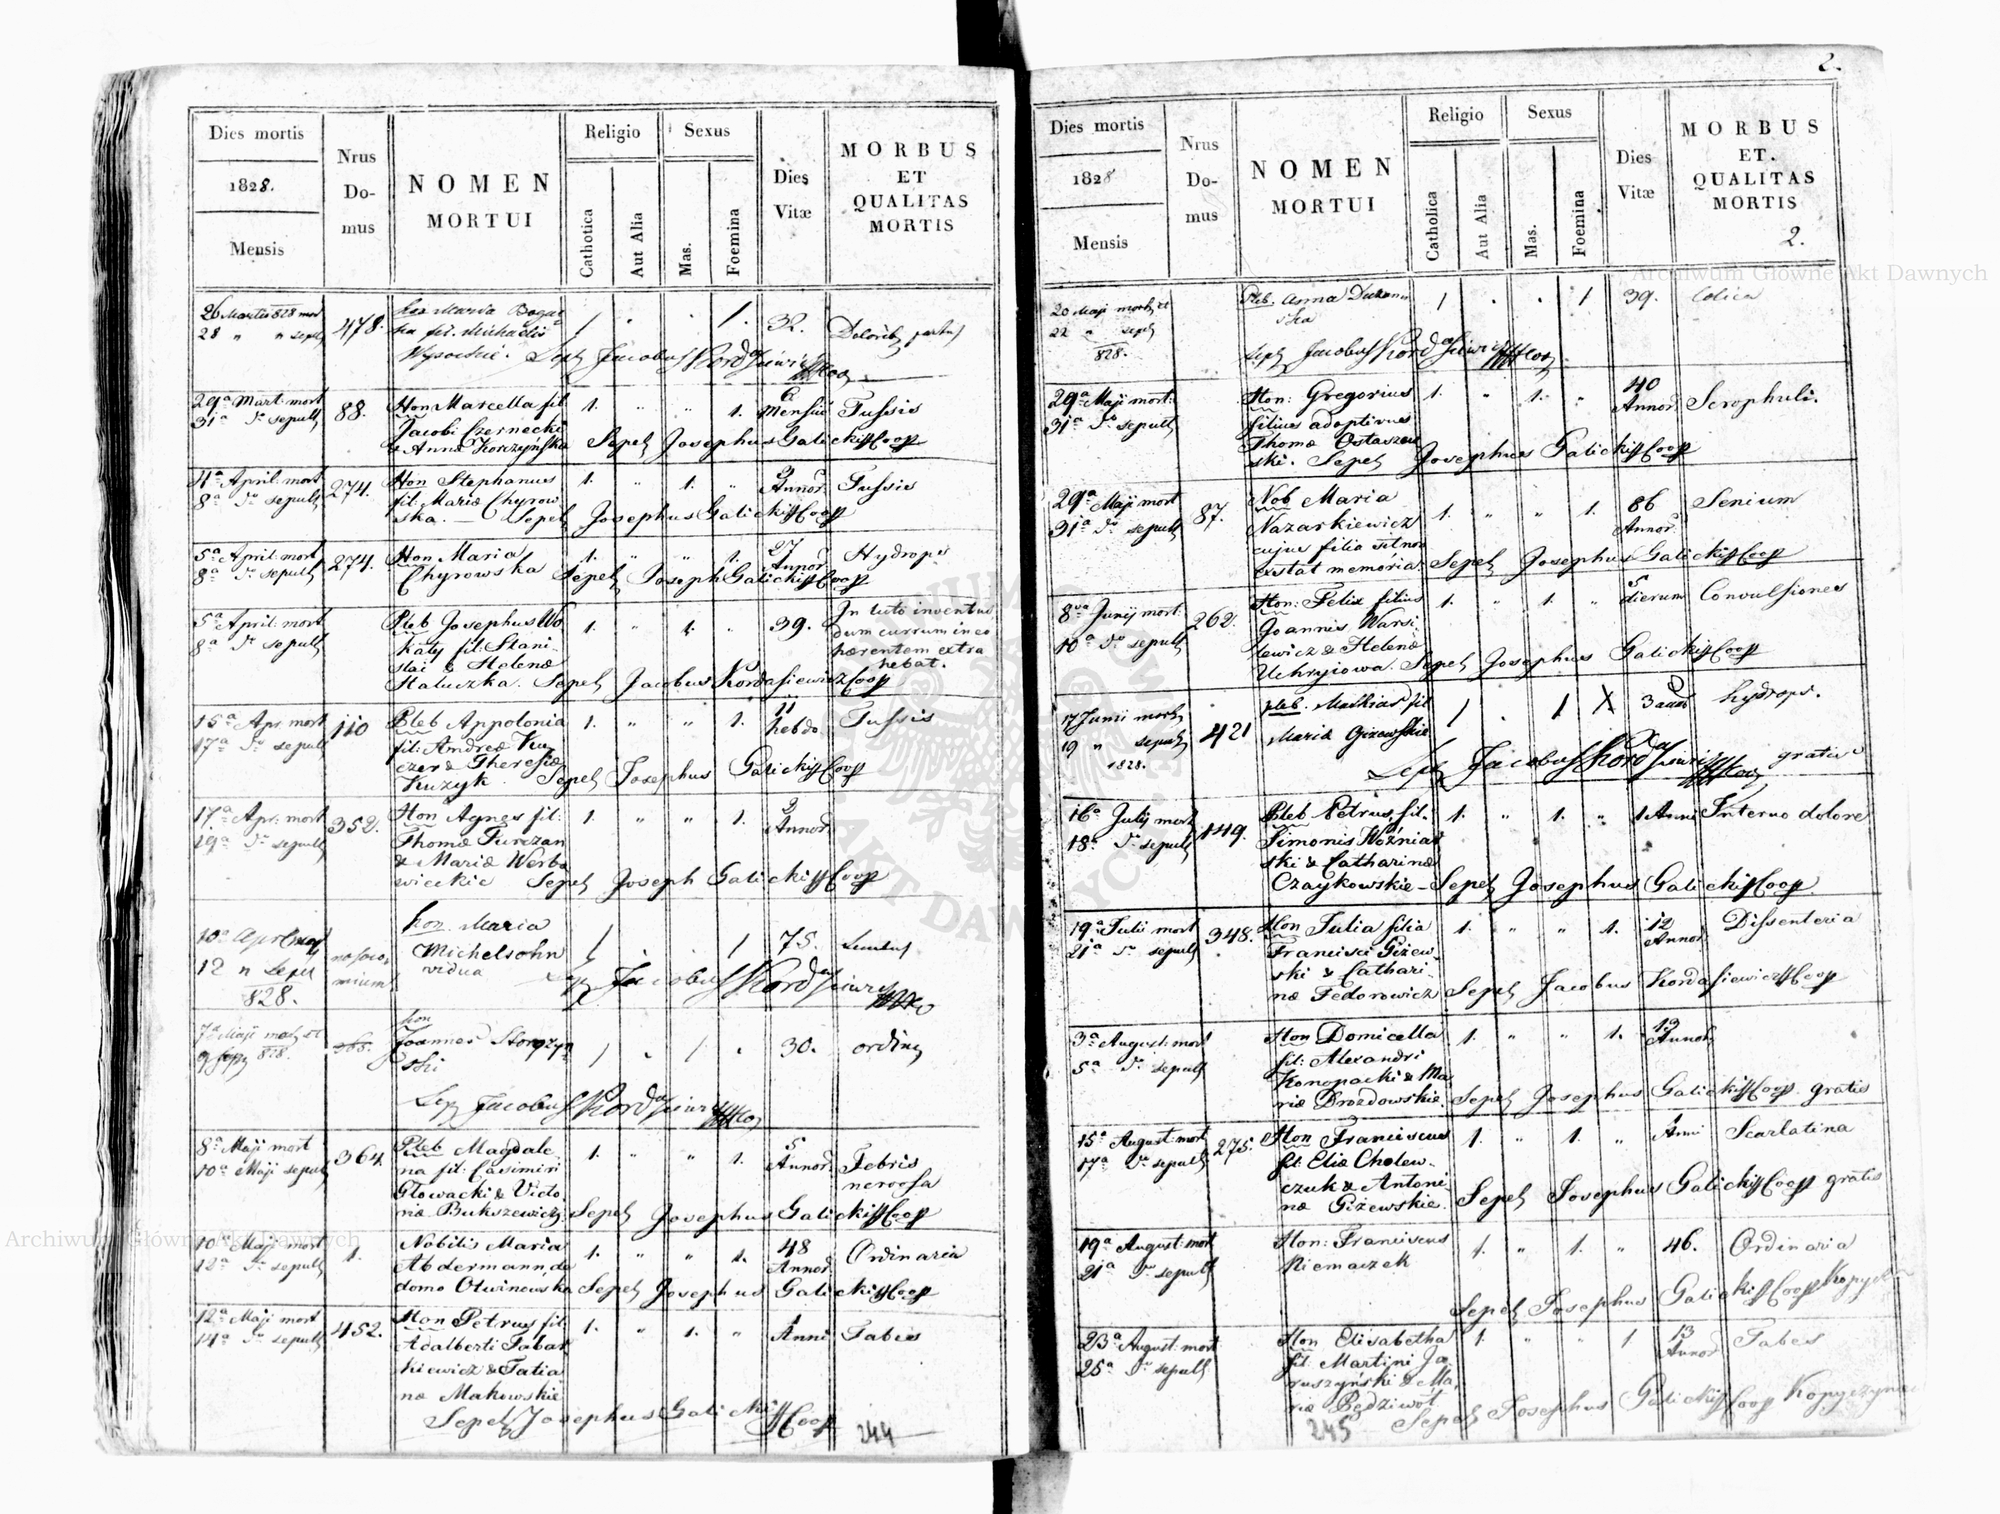 Dies mortis
1828.
Mensis
Nrus
Do-
mus
NOMEN
MORTUI
Religio
Cathotica
Aut Alia
Sexus
Mas.
Foemina
Dies
Vitæ
MORBUS
ET
QUALITAS
MORTIS
26 Martii 828 mor
28 " " sepul
478.
hon Maria Bogac
ka fil. Michaelis
Wysockie. Sepel Jacobus Kordasiewicz Coop
1.
32.
Doloribus partus
29a Mart: mort
31a do sepult
88.
Hon Marcella fil
Jacobi Czernecki
& Anna Korczyńska Sepel Josephus Galicki Coop
1. " " 1.
6
Mensiu
Tussis
4a April: mort
8a do sepult
274.
Hon Stephanus
fil: Maria Chyrow
ska. — Sepel Josephus Galicki Coop
1. " 1. "
Annor.
Tussis
5a April: mort
8a do sepult
274.
Hon Maria
Chyrowska Sepel Joseph Galicki Coop
1. " " 1.
27
Annor
Hydrops
5a April: mort
8a do sepult
Pleb Josephus Wo
Katy fil: Stani-
slai & Helenæ
Haluczka. Sepel Jacobus Kordasiewicz Coop
1. " 1. "
39.
In luto inventus
dum currum in eo
hærentem extra
hebat.
15a Apr: mort
17a do sepult
110
Pleb Appolonia
fil: Andreæ Ku
czer & Theresiæ
Kuzyk. Sepel Josephus Galicki Coop
1. " " 1.
11
hebdo.
Tussis
17a Apr: mort
19a do sepult
352.
Hon Agnes fil:
Thomæ Turczan
& Mariæ Werbo
wieckie Sepel Joseph Galicki Coop
1. " " 1.
Annor
10a April mor
12 " Sepel
828.
hon. Maria
Michelsohn
vidua
Sepel Jacobus Kordasiewicz
75.
7a Maji mort, et
9 sepul 828.
hon
Joannes Storczyn
ski
Sepel Jacobus Kordasiewicz Coop
30.
ording
8a Maji mort
10a Maji sepult
364.
Pleb Magdale-
na fil: Casimiri
Głowacki & Victo-
riæ Bukszewicz Sepel Josephus Galicki Coop
1. " " 1.
5
Annor.
Febris
nervosa
10a Maji mort
12a do sepult
1.
Nobilis Maria
Abdermann, de
domo Otwinowska Sepel Josephus Galicki Coop
1. " " 1.
48
Annor.
Ordinaria
12a Maji mort
14a do sepult
452.
Hon Petrus fil:
Adalberti Tabar
kiewicz & Tatia
næ Makowskie
Sepel Josephus Galicki Coop
1. " 1. "
1
Anni
Tabes
244
2.
Dies mortis
1828
Mensis
Nrus
Do-
mus
NOMEN
MORTUI
Religio
Catholica
Aut Alia
Sexus
Mas.
Foemina
Dies
Vitæ
MORBUS
ET.
QUALITAS
MORTIS
2.
20 Maji mort, et
22 " sepul
828.
Pleb. Anna
ska
Sepel Jacobus Kordasiewicz Coop
39.
Colica
29a Maji mort:
31a do sepult
Hon: Gregorius
filius adoptivus
Thomæ Ostaszew
ski. Sepel Josephus Galicki Coop
1. " 1. "
40
Annor
Scrophuli.
29a Maji mort
31a do sepult
87.
Nob Maria
Nazarkiewicz
cujus filia sit non
exstat memoria. Sepel Josephus Galicki Coop
1. " " 1.
86
Annor.
Senium
8va Junij mort:
10a do sepult
262.
Hon: Felix filius
Joannis Warsi-
lewicz & Helenæ
Uchryiowa. Sepel Josephus Galicki Coop
1. " 1. "
5
dierum
Convulsiones
17 Junii mort,
19 " sepult
1828.
421
pleb. Mathias fil
Mariæ Giżewskie
Sepel Jacobus Kordasiewicz Coop gratis
hydrops.
16a Julij mort
18a do sepult
149.
Pleb Petrus, fil:
Simonis Woźniat
ski & Catharinæ
Czaykowskie – Sepel Josephus Galicki Coop
1. " 1. "
1 Anni
Interno dolore
19a Julii mort
21a do sepult
348.
Hon Julia filia
Francisci Giżew-
ski & Cathari-
næ Fedorowicz Sepel Jacobus Kordasiewicz Coop
1. " " 1.
12
Annor
Dissenteria
3a August: mort
5a do sepult
Hon Domicella
fil: Alexandri
Konopacki & Ma
riæ Drozdowskie. Sepel Josephus Galicki Coop gratis
1. " " 1.
13
Annor
15a August: mort
17a do sepult
275.
Hon Franciscus
fil: Eliæ Cholew-
czuk & Antoni-
næ Giżewskie. Sepel Josephus Galicki Coop gratis
1. " 1. "
1
Anni
Scarlatina
19a August: mort
21a do sepult
Hon: Franciscus
Niemaczek
Sepel Josephus Galicki Coop
1. " 1. "
46.
Ordinaria
23a August: mort
25a do sepult
Hon Elisabetha
fil: Martini Ja-
ruszyński & Ma-
riæ Będziwoł
Sepel Josephus Galicki Coop
1. " " 1
13
Annor
Tabes
245
Archiwum Główne Akt Dawnych
Archiwum Główne Akt Dawnych